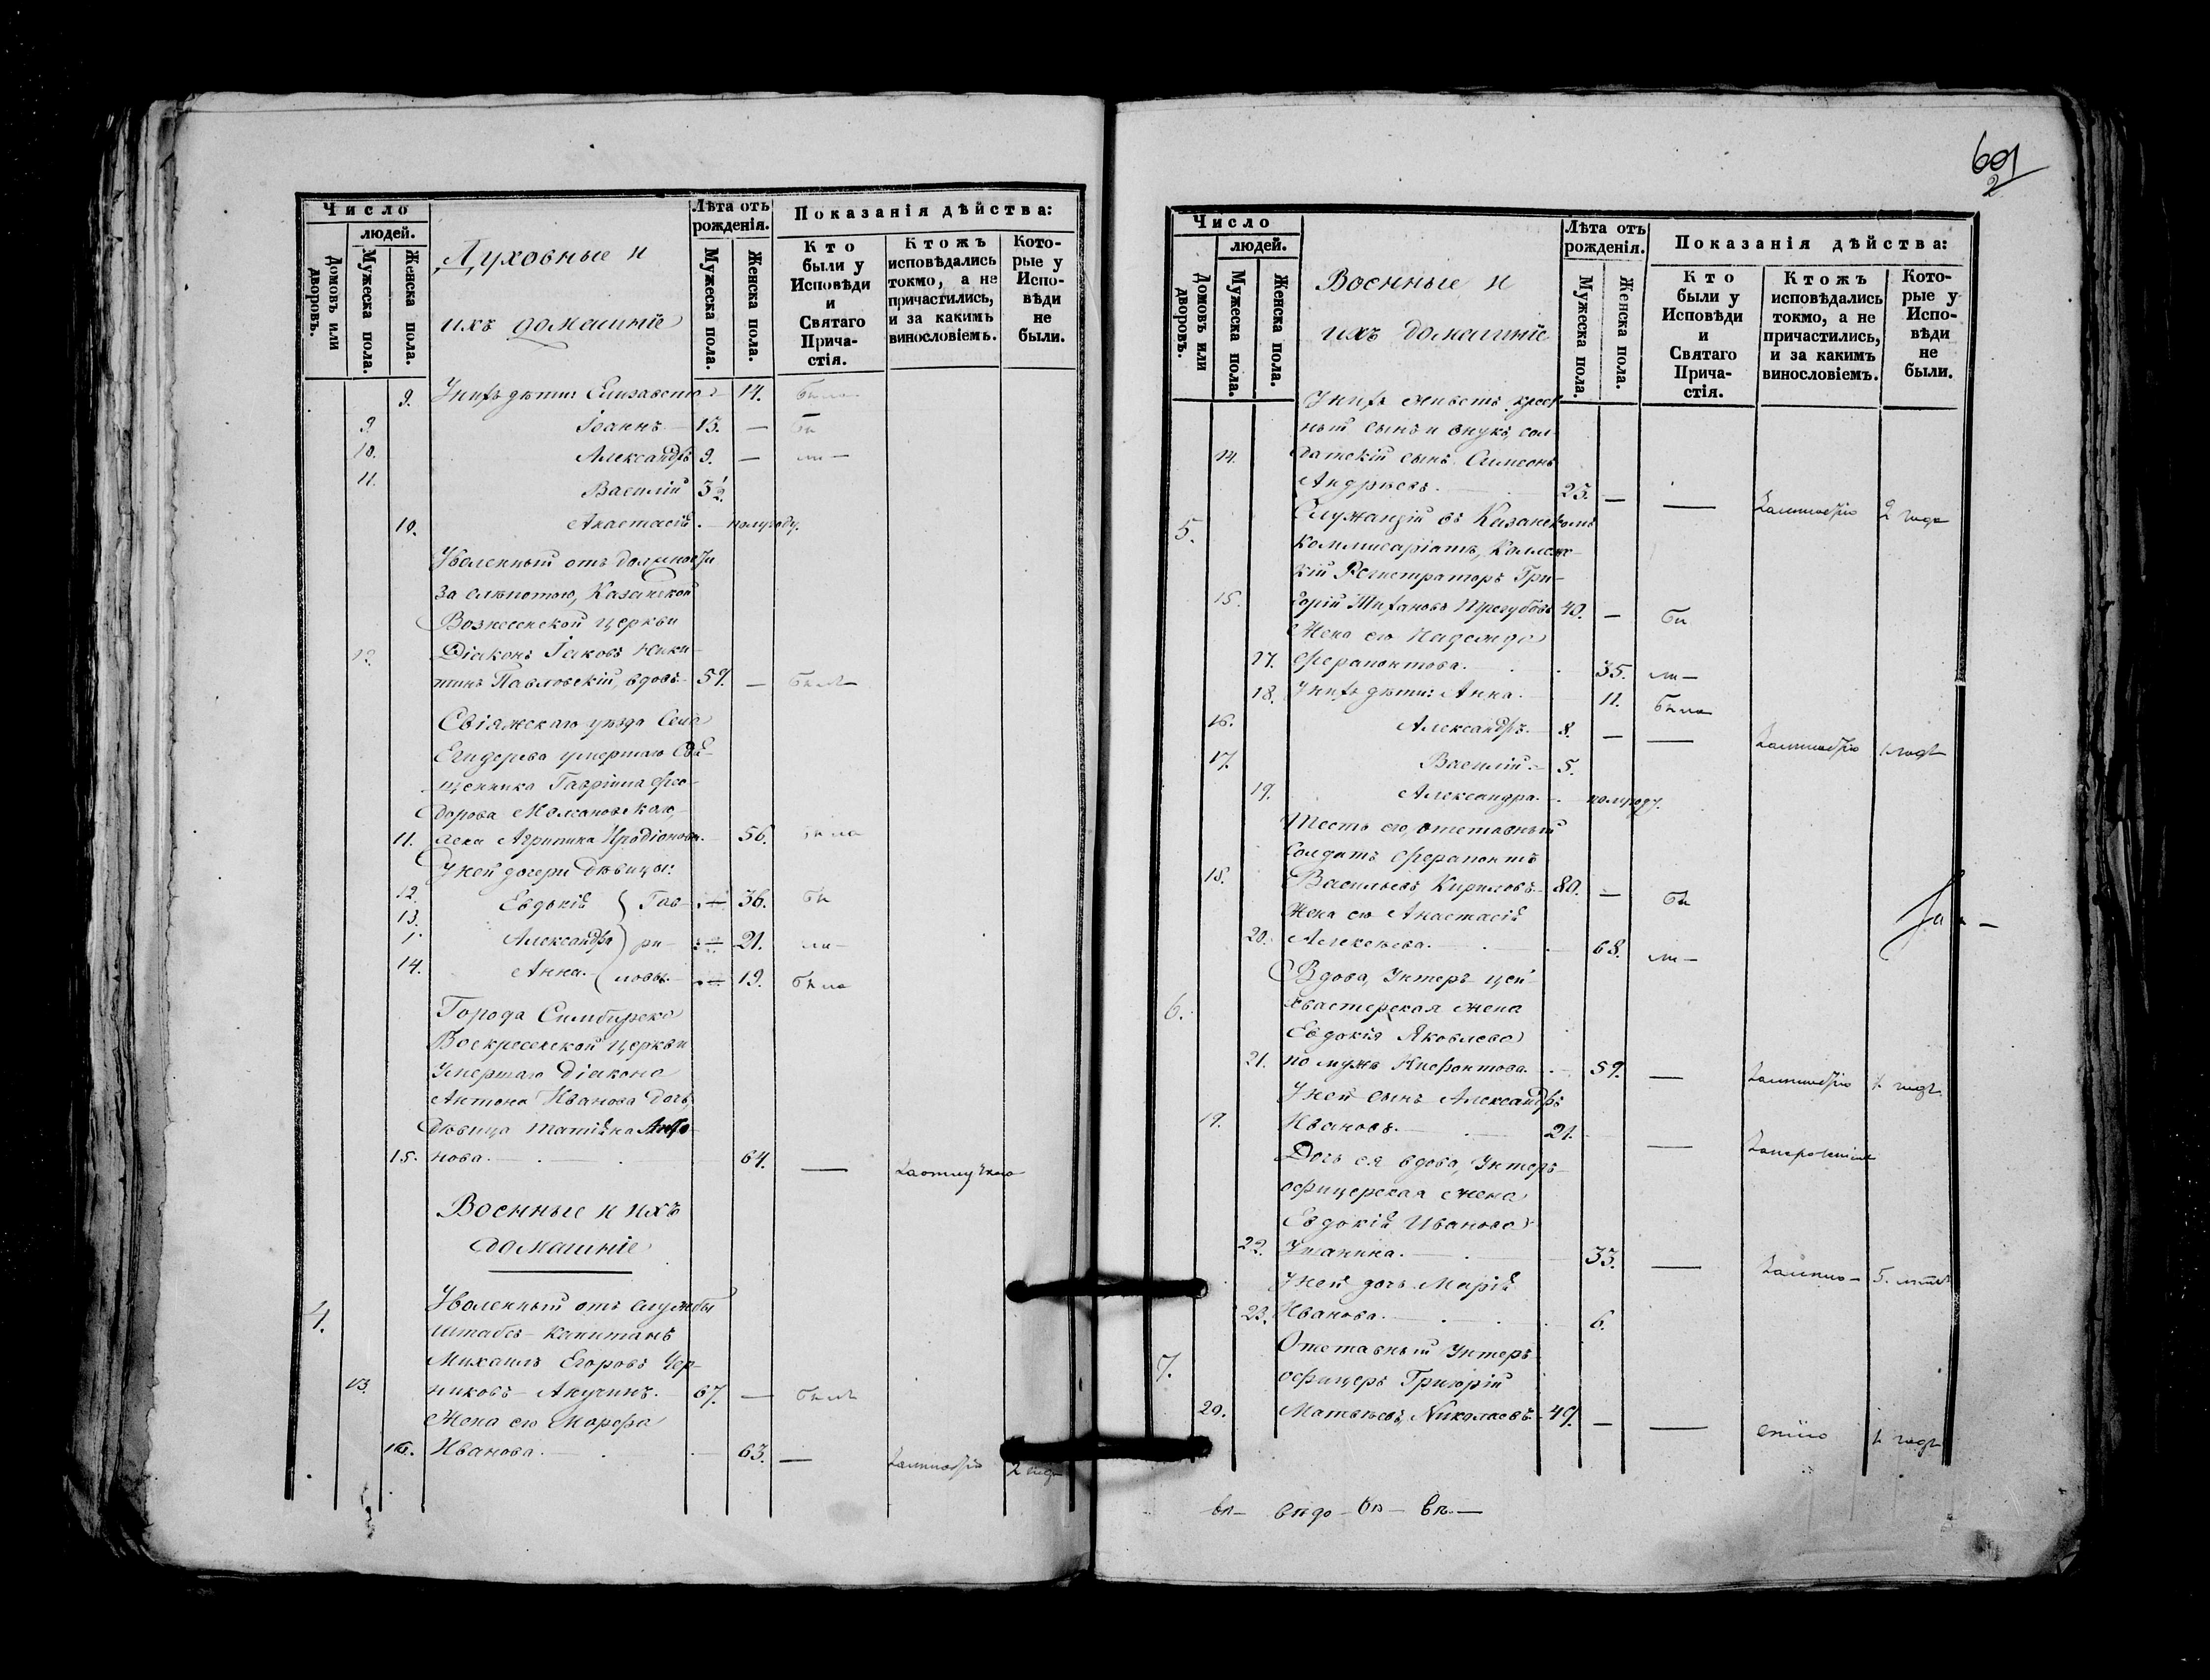 Число
людей.
Домовъ или дворовъ.
Мужеска пола.
Женска пола.
Духовные и
ихъ домашніе
Лѣта отъ рожденія.
Мужеска пола.
Женска пола.
Показанія дѣйства:
Кто были у Исповѣди и Святаго Прича-стія.
Ктожъ исповѣдались токмо, а не причастились, и за какимъ винословіемъ.
Кото-рые у Испо-вѣди не были.
9. У нихъ дѣти: Елисавета 14. была
9. Іоаннъ 13. — бы
10. Александръ 9. — ли —
11. Василій 3½.
10. Анастасія. — полугоду.
Уволенный отъ должности
за слѣпотою, Казанской
Вознесенской церкви
Діаконъ Іаковъ Ники-
12. тинъ Павловскій, вдовъ 59. — былъ
Свіяжскаго уѣзда Села
умершаго Свя-
щенника Гавріила Фео-
дорова
11. жена Агрипина Иродіонова. 56. была
У ней дочери дѣвицы:
12. Евдокія Гав- 36. бы
13. Александра ри- 21. ли —
14. Анна. ловы. 19. была
Города Симбирска
Воскресенской церкви
умершаго Діакона
Антона Иванова дочь,
дѣвица Татіана Анто-
15. нова. 64. —
Военные и ихъ
домашніе
4. Уволенный отъ службы
штабсъ-капитанъ
Михаилъ Егоровъ Чер-
13. никовъ-Анучинъ. 67. — былъ
Жена его Марфа
16. Иванова. 63. — 2 года
601
2
Число
людей.
Домовъ или дворовъ.
Мужеска пола.
Женска пола.
Военные и
ихъ домашніе
Лѣта отъ рожденія.
Мужеска пола.
Женска пола.
Показанія дѣйства:
Кто были у Исповѣди и Святаго Прича-стія.
Ктожъ исповѣдались токмо, а не причастились, и за какимъ винословіемъ.
Кото-рые у Испо-вѣди не были.
У нихъ живетъ крест-
ный сынъ и внукъ, сол-
14. датскій сынъ Симеонъ
Андреевъ. 23. — — 2 года
5. Служащій въ Казанскомъ
Коммисаріатѣ, Коллеж-
скій Регистраторъ Гри-
15. горій 40. — бы
Жена его Надежда
17. Ферапонтова. 35. ли —
18. У нихъ дѣти: Анна. 11. была
16. Александръ. 8. — — 1 годъ
17. Василій. 5.
19. Александра. полугоду.
Тесть его, отставный
солдатъ Ферапонтъ
18. Васильевъ Кириловъ 80. — бы
Жена его Анастасія
20. Алексѣева. 68. ли —
6. Вдова, Унтеръ-цей-
хвастерская жена
Евдокія Яковлева
21. по мужѣ Ксефонтова. 59. — 1. годъ
У ней сынъ Александръ
19. Ивановъ. 21. —
Дочь ея вдова, Унтеръ-
офицерская жена
Евдокія Иванова
22. 33. — 5. лѣтъ
У ней дочь Марія
23. Иванова. 6.
7. Отставный Унтеръ-
офицеръ Григорій
20. Матвѣевъ Николаевъ. 49. — — 1. годъ